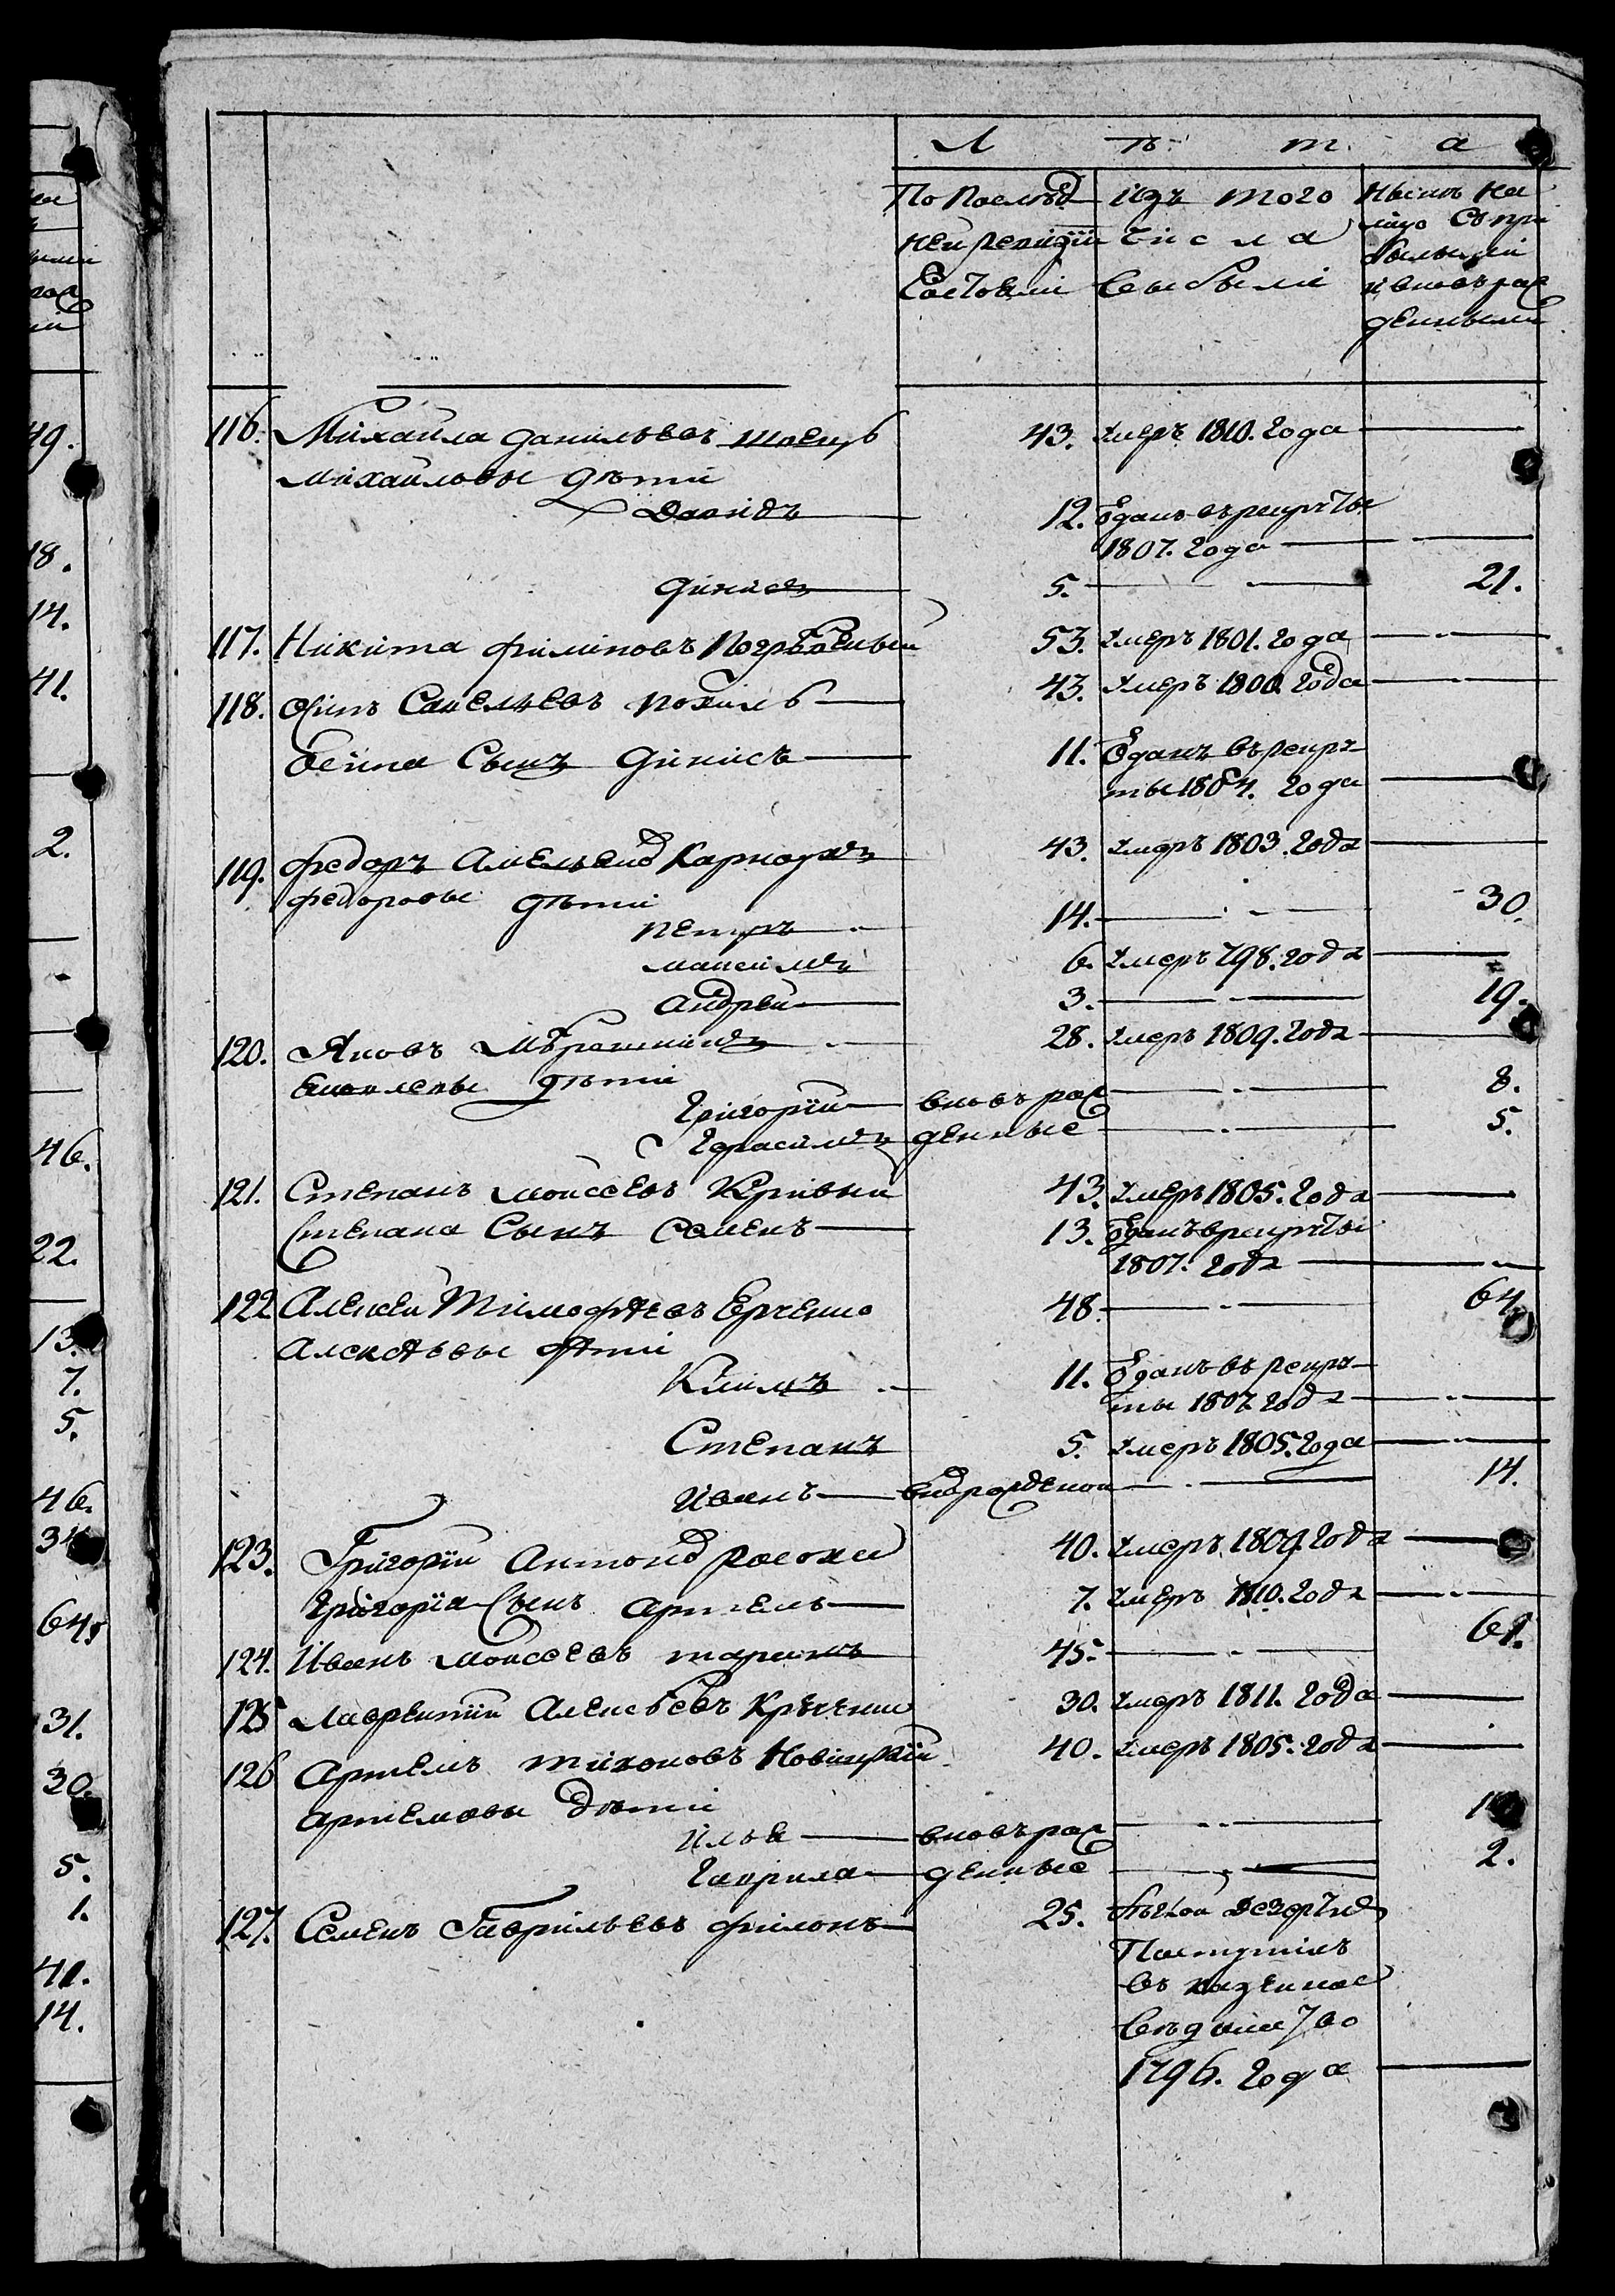 Л ѣ т а
По послѣд изъ того нынѣ на
ней ревизіи числа лицо съ при
состояли выбыли былыми
и вновь рож
денными
116. Михайла Данильевъ Швецъ 43. умеръ 1810. года
Михайловы дѣти
Давидъ 12. Отданъ въ рекруты
1807. года
Динисъ 5. 21.
117. Никита Филиповъ Погребный 53. умеръ 1801. года
118. Осипъ Савельевъ Похилъ 43. умеръ 1800. года
Осипа Сынъ Динисъ 11. Отданъ въ рекру
ты 1804. года
119. Федоръ Амельянов 43. умеръ 1803. года
Федоровы дѣти
Петръ 14. 30.
Максимъ 6. умеръ 798. года
Андрей 3. 19.
120. Яковъ 28. умеръ 1809. года
Яковлевы дѣти
Григорій вновь рож 8.
Герасимъ денные 5.
121. Степанъ Моисеевъ Кривкий 43. умеръ 1805. года
Степана Сынъ Семенъ 13. Отданъ в рекруты
1807. года
122 Алексей Тимофѣевъ Ерченко 48. 64.
Алексѣевы дѣти
Климъ 11. Отданъ въ рекру
ты 1807 года
Степанъ 5. умеръ 1805. года
Иванъ внов рожденой 14.
123. Григорій Антонов Росоха 40. умеръ 1809. года
Григорія Сынъ Артемъ 7. умеръ 1810. года
124. Иванъ Моисеевъ Таранъ 45. 61.
125 Лаврентій Алексѣевъ 30. умеръ 1811. года
126 Артемъ Тихоновъ Новицкій 40. умеръ 1805. года
Артемовы дѣти
Илья вновь рож
Гаврила денные 2.
127. Семенъ Гаврильевъ Филонъ 25.
Поступилъ
въ казенное
вѣдомство
1796. года
49.
18.
14.
41.
2.
46.
22.
13.
7.
5.
46.
34
64.
31.
30.
5.
1.
41.
14.